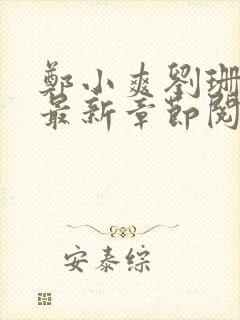 鄭小爽劉珊
最新章節閱
安泰綜